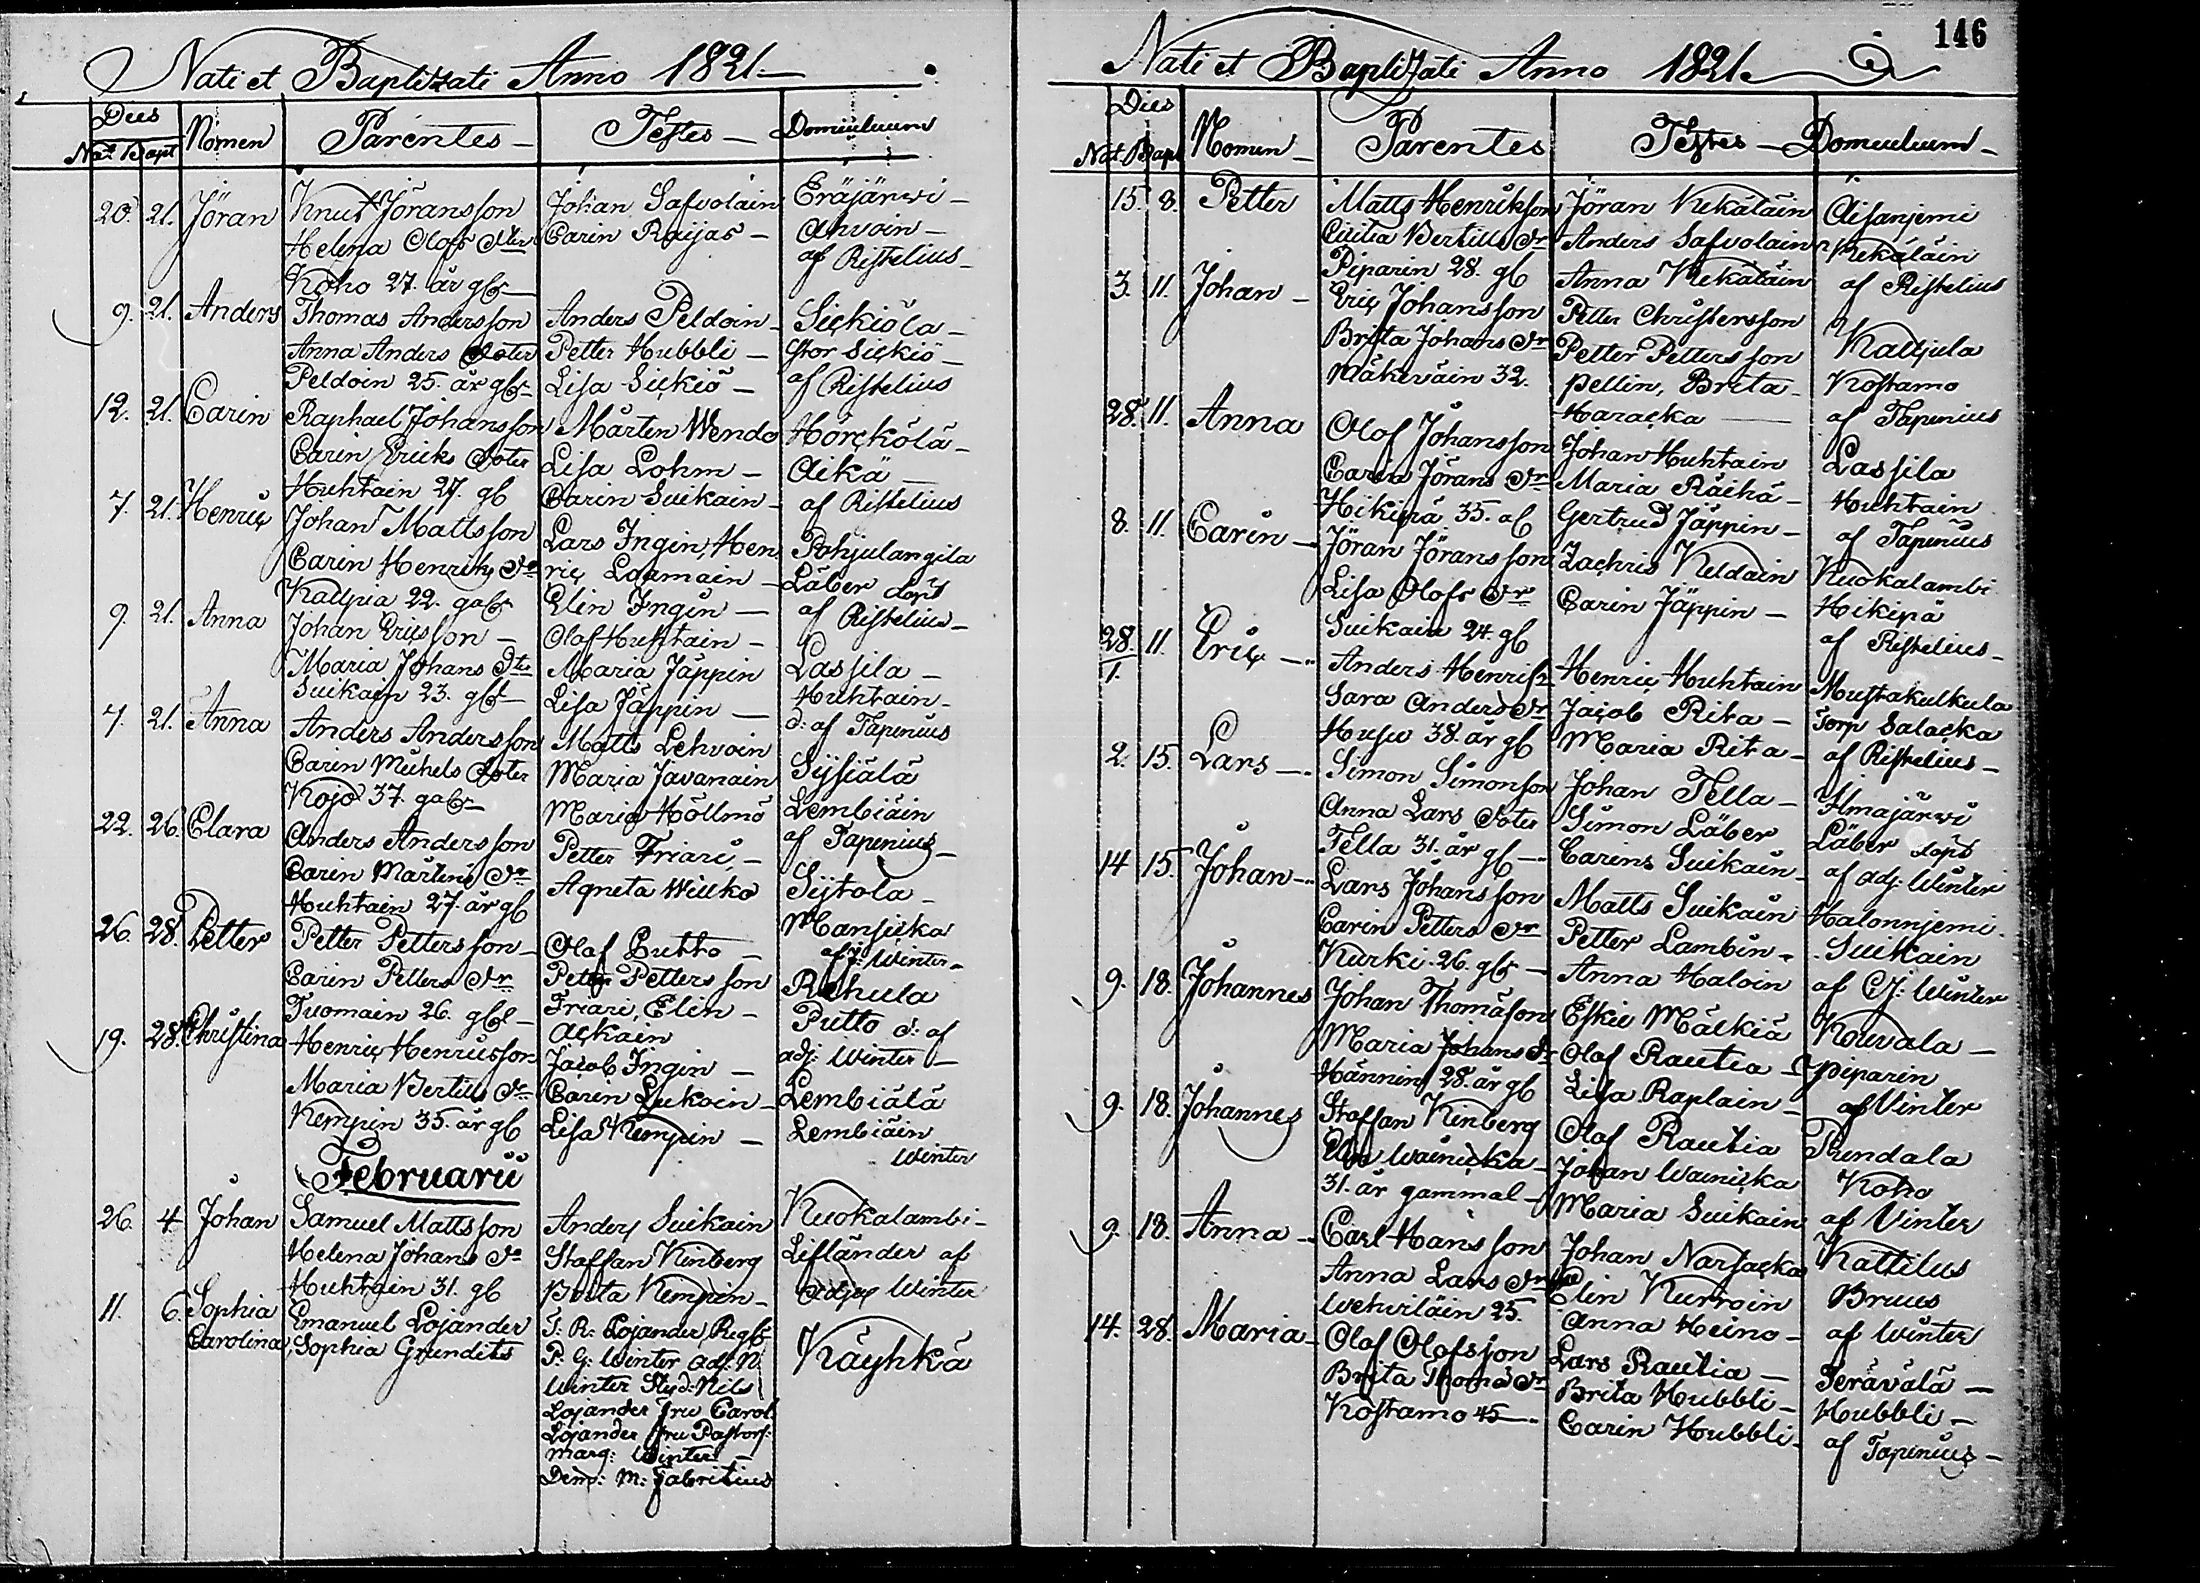 Nati et Baptizati Anno 1821.
Dies
Nat Bapt Nomen Parentes Testes Domicilium
20. 21. Jöran Knut Jöransson Johan Safvolain Eräjärwi
Helena Olofs Dter Carin Raijas Ahvoin
Koho 27. år gl af Ristelius
9. 21. Anders Thomas Andersson Anders Peldoin Sickiölä
Anna Anders Doter Petter Hubbli Stor Sickiö
Peldoin 25. år gl Lisa Sickiö af Ristelius
12. 21. Carin Raphael Johansson Mårten Wendo Hörckölä
Carin Ericks Doter Lisa Lohm Aikä
Huhtain 27. gl Carin Suikain af Ristelius
7. 21. Henric Johan Mattsson Lars Ingin, Hen
Carin Henrik Dr ric Loamain Pohjulangila
Kattpia 22. gl Elin Ingin Läber
af Ristelius
9. 21. Anna Johan Ericsson Olof Huhtain
Maria Johans Dter Maria Jäppin Lassila
Suikain 23. gl Lisa Jäppin Huhtain
7. 21. Anna Anders Andersson Matts Lehvoin d: af Tapenius
Carin Michels Doter Maria Javanain Sijsiälä
Kojo 37. Maria Höllmö Lembiäin
22. 26. Clara Anders Andersson Petter Friari af Tapenius
Carin Mårtins Dr Agneta Wilcko Sijtola
Huhtain 27. år gl Mansicka
26. 28. Petter Petter Pettersson Olof Putto Winter
Carin Petters Dr Petter Pettersson Rehula
Tuomain 26. Friari, Elin Putto d: af
19. 28. Christina Henric Henricsson Ackain adj: Winter
Maria Bertils Dr Jacob Ingin Lembiälä
Kempin 35. år gl Carin Leckoin Lembiäin
Lisa Kempin Winter
Februarii
26. 4. Johan Samuel Mattsson Anders Suikain Kuokalambi
Helena Johans Dr Staffan Kinberg Lifländer af
Huhtain 31. gl Brita Kempin Winter
11. 6. Sophia Emanuel Lojander J: R: Lojander,
Carolina, Sophia Grundits P: G: Winter adj. N. Käyhkä
Winter Stud: Nils
Lojander fru Carol.
Lojander fru Pastors:
marg: Winter
Dem: M: Fabritius
146
Nati et Baptizati Anno 1821.
Dies
Nat. Bapt Nomen Parentes Testes Domicilium
15. 8. Petter Matts Henrikson Jöran Kekäläin Äisänjemi
Cicilia Bertills Dr Anders Safvolain Kekäläin
Piparin 28. gl Anna Kekäläin af Ristelius
3. 11. Johan Eric Johansson Petter Christersson Kattjula
Brita Johans Dr Petter Pettersson Kostamo
Mäkeväin 32. Pellin, Brita af Tapenius
28. 11. Anna Olof Johansson Haracka Lassila
Carin Jörans Dr Johan Huhtain Huhtain
Hikipä 35. Maria Räihä af Tapenius
8. 11. Carin Jöran Jöransson Gertrud Jäppin Kuokalambi
Lisa Olofs Dr Zachris Keldain Hikipä
Suikain 24. gl Carin Jäppin af Ristelius
28./1. 11. Eric Anders Henriks Henric Huhtain Mustakulkula
Sara Anders Dr Jacob Rita Torp Salacka
Husu 38. år gl Maria Rita af Ristelius
2. 15. Lars Simon Simonson Johan Tella Ilmajärwi
Anna Lars Doter Simon Läber Läber
Tella 31. år gl Carins Suikain af adj: Winter
14 15. Johan Lars Johansson Matts Suikain Halonnjemi
Carin Petters Dr Petter Lambin Suikain
Kurki 26. Anna Haloin af Winter
9. 18. Johannes Johan Thomason Eskil Mälkiä Kouvala
Maria Johans Dr Olof Rautia Piparin
Hännin 28. år gl Lisa Raplain af Vinter
9. 18. Johannes Staffan Kinberg Olof Rautia Pundala
Elin Wainicka Johan Wainicka Koho
31. år gammal Maria Suikain af Vinter
9. 18. Anna Carl Hansson Johan Narsacka Kattilus
Anna Lars Dr Elin Kurroin Bruus
Wehviläin 25. Anna Heino af Winter
14. 28. Maria Olof Olofsson Lars Rautia Terävälä
Brita Thoms Dr Brita Hubbli Hubbli
Kostamo 45 Carin Hubbli af Tapenius